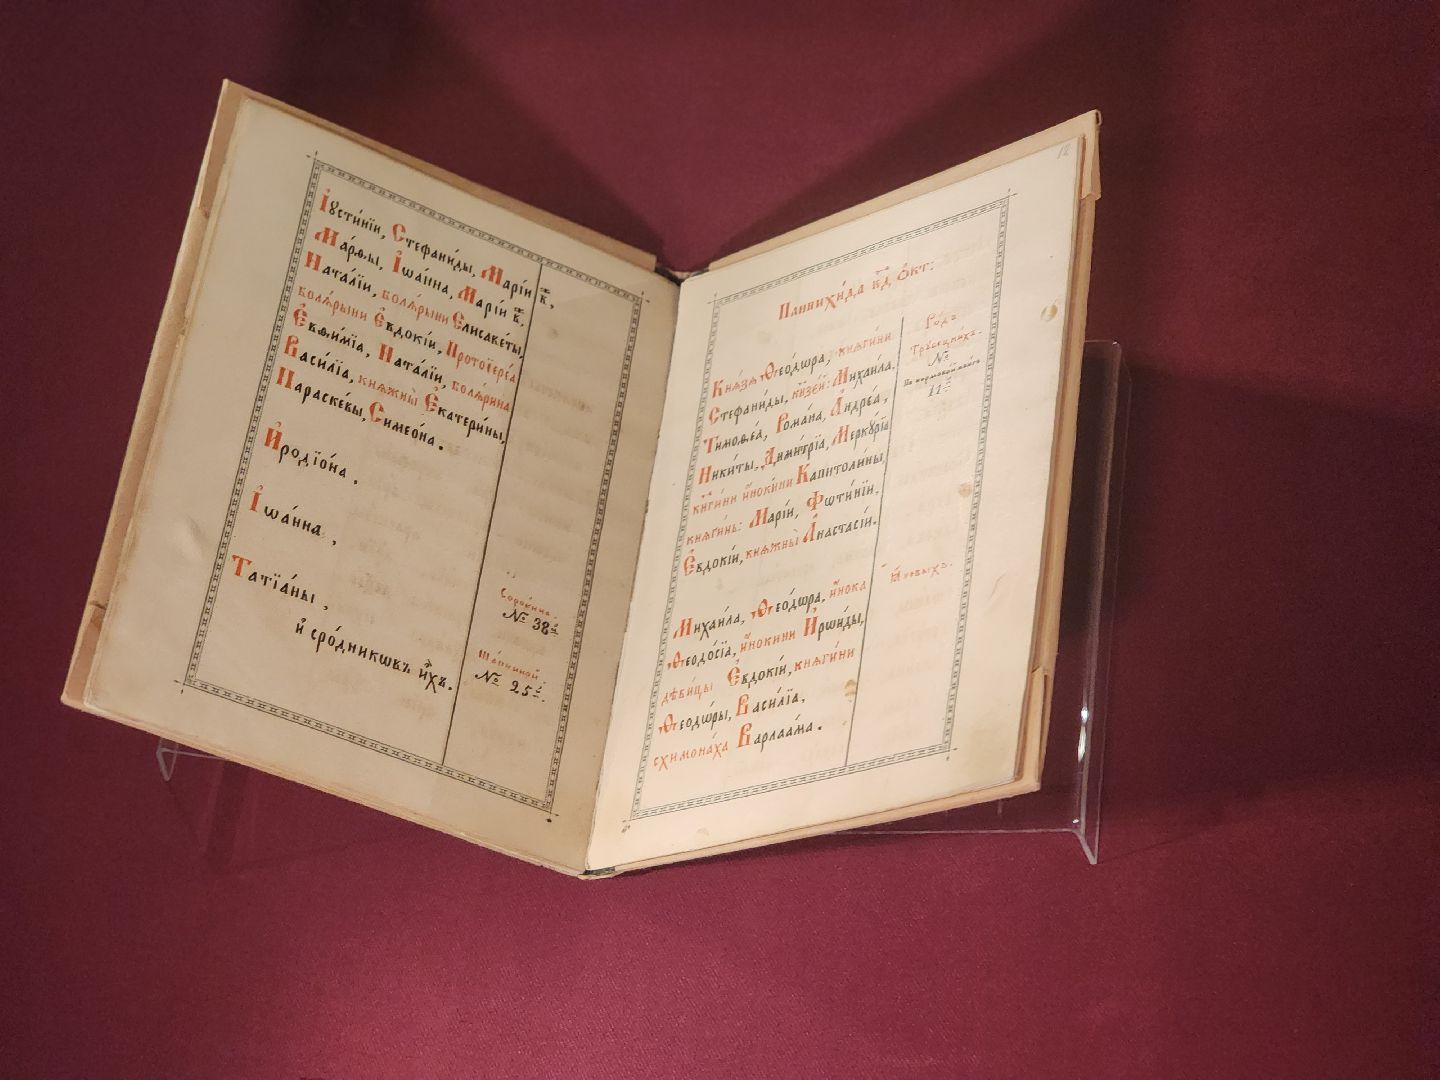 І҆ꙋсті́нїи, Стефани́ды, Марі́и в҃,
Ма́рѳы, І҆ѡа́нна, Марі́и в҃,
Ната́лїи, болѧ́рыни Є҆лисаве́ты,
болѧ́рыни Є҆вдокі́и, Протоїере́а
Є҆вѳи́мїа, Ната́лїи, болѧ́рина
Васи́лїа, кнѧжны̀ Є҆катери́ны,
Параске́вы, Симео́на.
И҆родїо́на,
І҆ѡа́нна,
Татїа́ны,
и҆ сро́дникѡвъ и҆́хъ.
Соро́кина.
№ 38
№ 25
12
Панихи́да к҃д О҆кт:
Кнѧ́зѧ Ѳео́дѡра, кнѧги́ни
Стефани́ды, кн҃зе́й: Михаи́ла,
Тимоѳе́а, Рома́на, А҆ндре́а,
Ники́ты, Дими́трїа, Мерку́рїа
кн҃ги́ни и҆́нокини Капитоли́ны,
кнѧги́нь: Марі́и, Фѡти́нїи,
Є҆вдокі́и, кнѧжны̀ А҆настасі́и.
Михаи́ла, Ѳео́дѡра, и҆́нока
Ѳеодо́сїа, и҆́нокини И҆рѡи́ды,
дѣви́цы Є҆вдокі́и, кнѧги́ни
Ѳеодѡ́ры, Васи́лїа,
схимона́ха Варлаа́ма.
Ро́дъ
Трꙋ́бецки́хъ.
№
По кормовой книгѣ
11